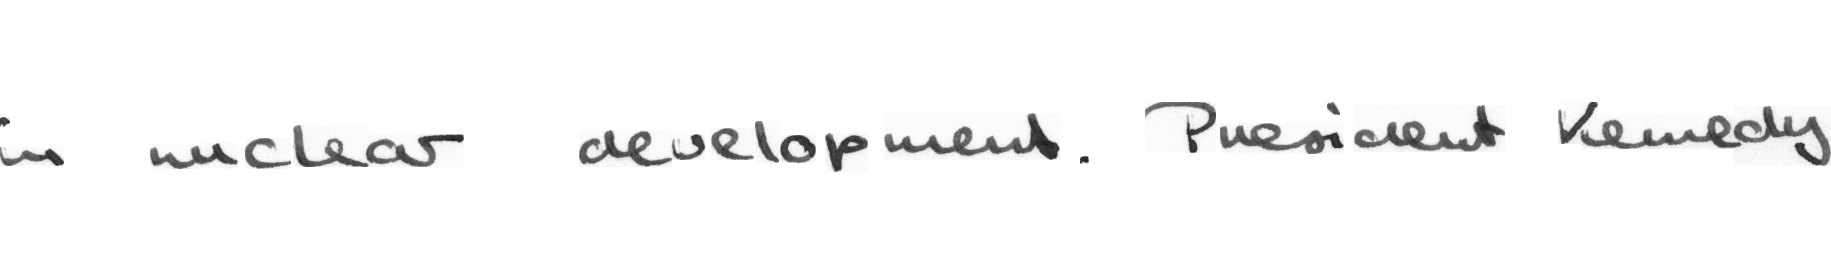 in nuclear development. President Kennedy